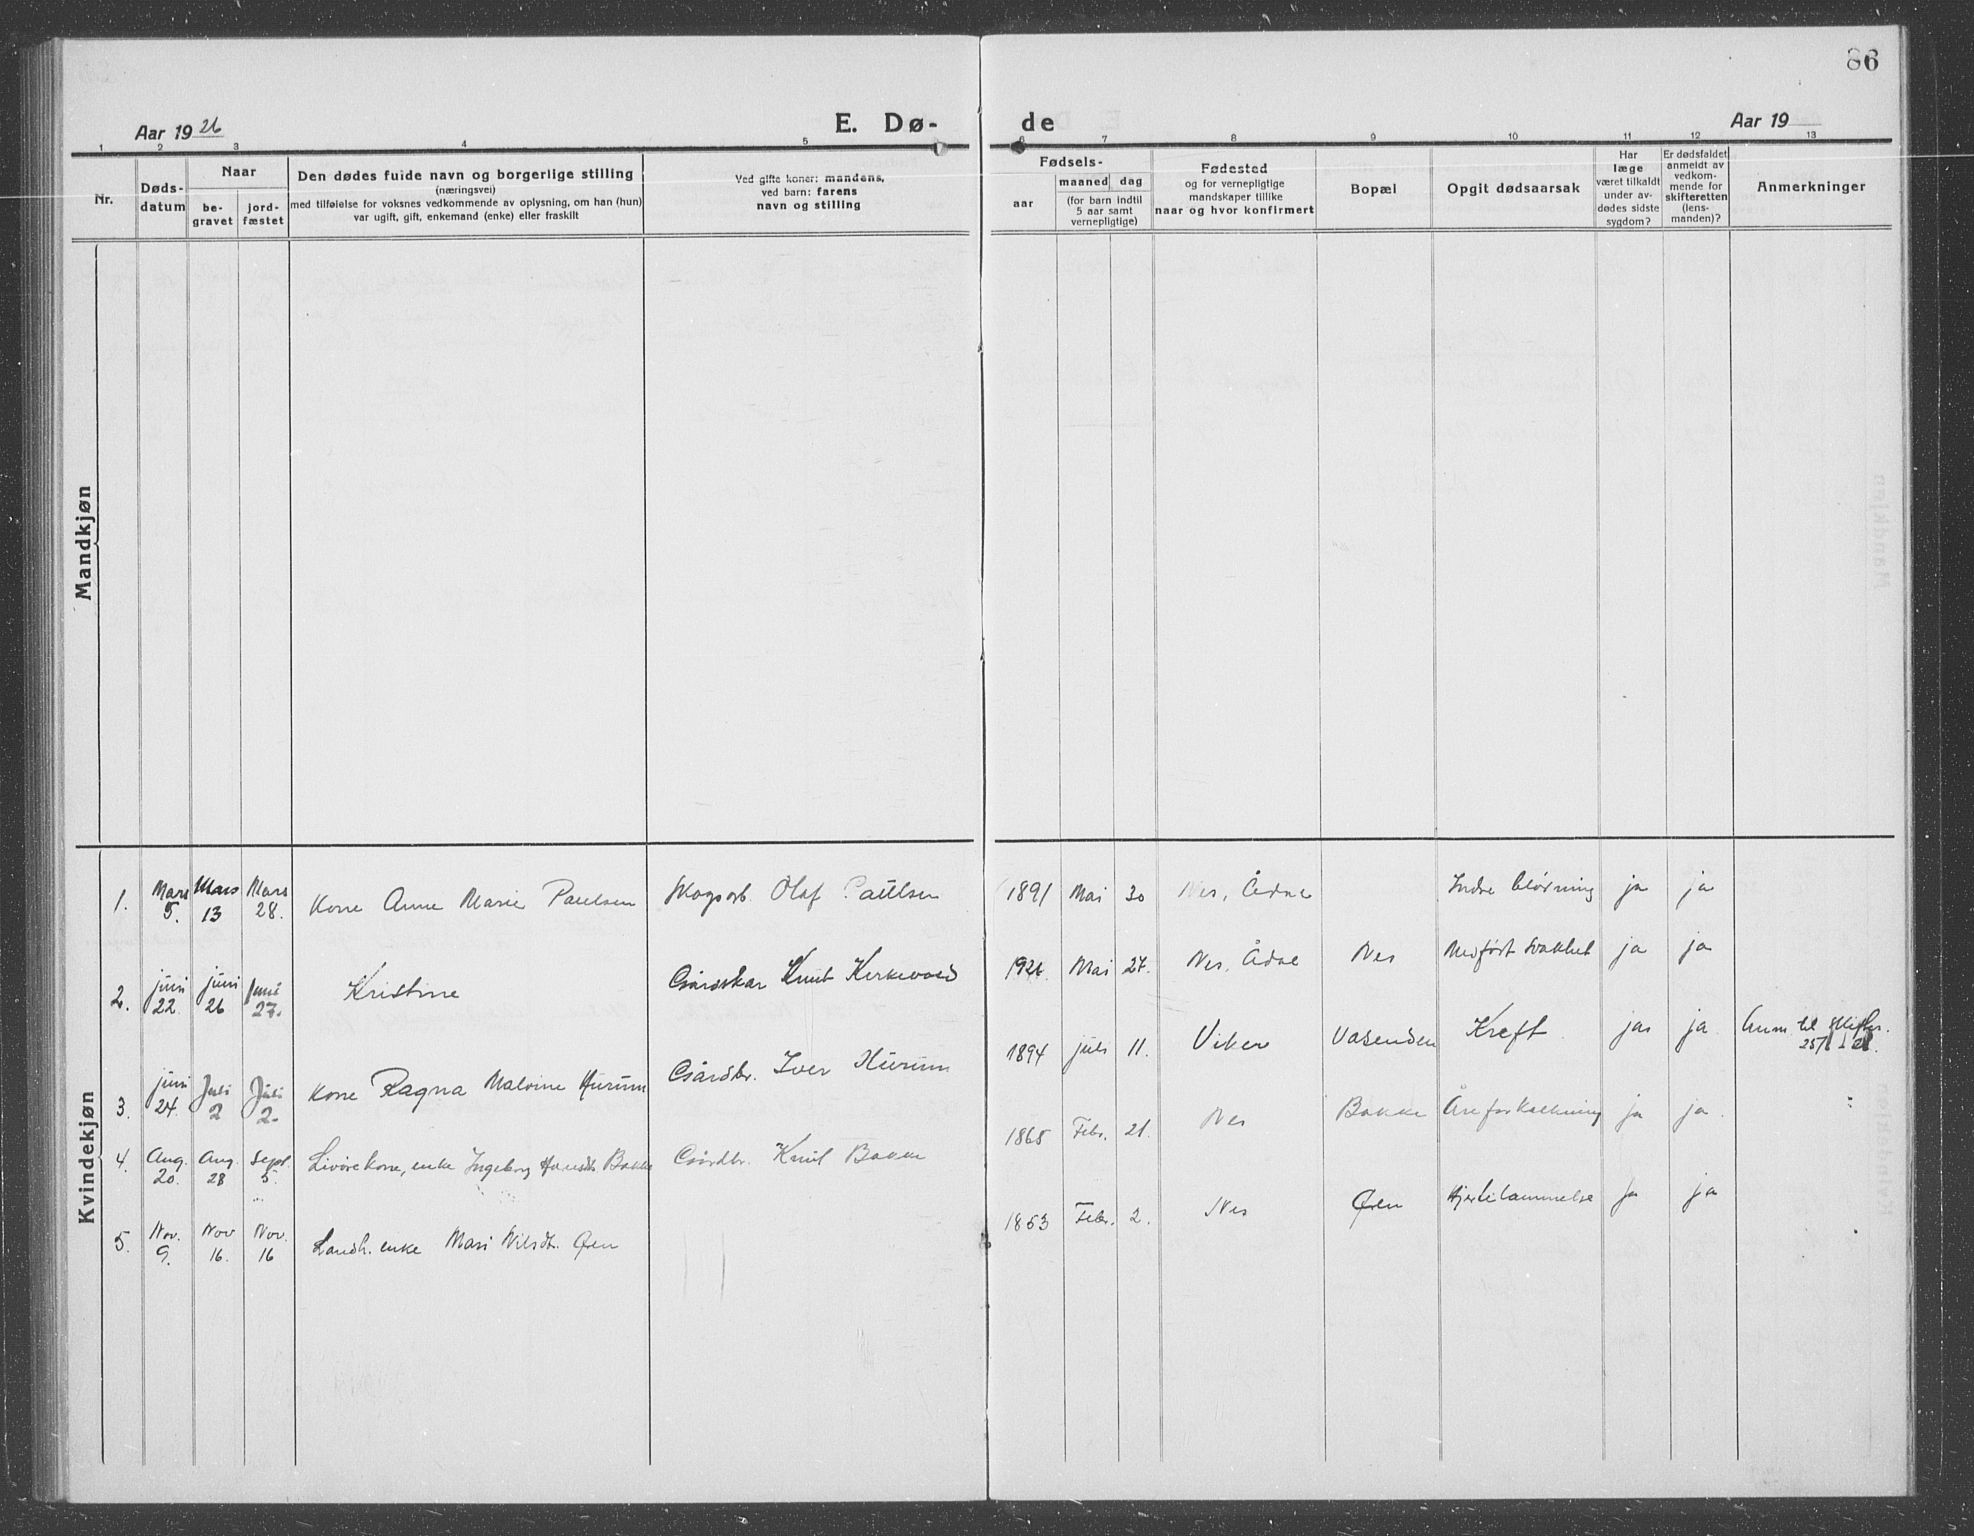 86
Aar 1926
E. Dø-
de
Aar 19
1 2 3 4 5 6 7 8 9 10 11 12 13
Nr.
Døds-
datum
Naar
be-
gravet
jord-
fæstet
Den dødes fulde navn og borgerlige stilling
(næringsvei)
med tilføielse for voksnes vedkommende av oplysning, om han (hun)
var ugift, gift, enkemand (enke) eller fraskilt
Ved gifte koner: mandens,
ved barn: farens
navn og stilling
Fødsels-
aar
maaned dag
(for barn indtil
5 aar samt
vernepligtige)
Fødested
og for vernepligtige
mandskaper tillike
naar og hvor konfirmert
Bopæl
Opgit dødsaarsak
Har
læge
været tilkaldt
under av-
dødes sidste
sygdom?
Er dødsfaldet
anmeldt av
vedkom-
mende for
skifteretten
(lens-
manden)?
Anmerkninger
Mandkjøn
Kvindekjøn
1. Mars 5. Mars 13 Mars 28. Kone Anne Marie Paulsen Skogsarb. Olaf Paulsen 1891 Mai 30 Nes, Ådal Indre blødning ja ja
2. juni 22. juni 26 Juni 27. Kristine Gårdskar Knut Kirkevold 1926. Mai 27. Nes, Ådal Nes Medført svakhet ja ja
3. juni 24. Juli 2 Juli 2. Kone Ragna Malvine Hurum Gårdbr. Iver Hurum 1894 juli 11. Viker Vasenden Kreft ja ja Anm til
4. Aug. 20. Aug. 28 Sept. 5. Livørekone, enke Ingeborg Hansdt. Bakke Gårdbr. Knut Bakke 1865 Febr. 21. Nes Bakke Åreforkalkning ja ja.
5. Nov. 9. Nov 16. Nov. 16 Landh. enke Mari Nilsdt. Øen 1853 Febr. 2. Nes Øen Hjertelammelse ja ja